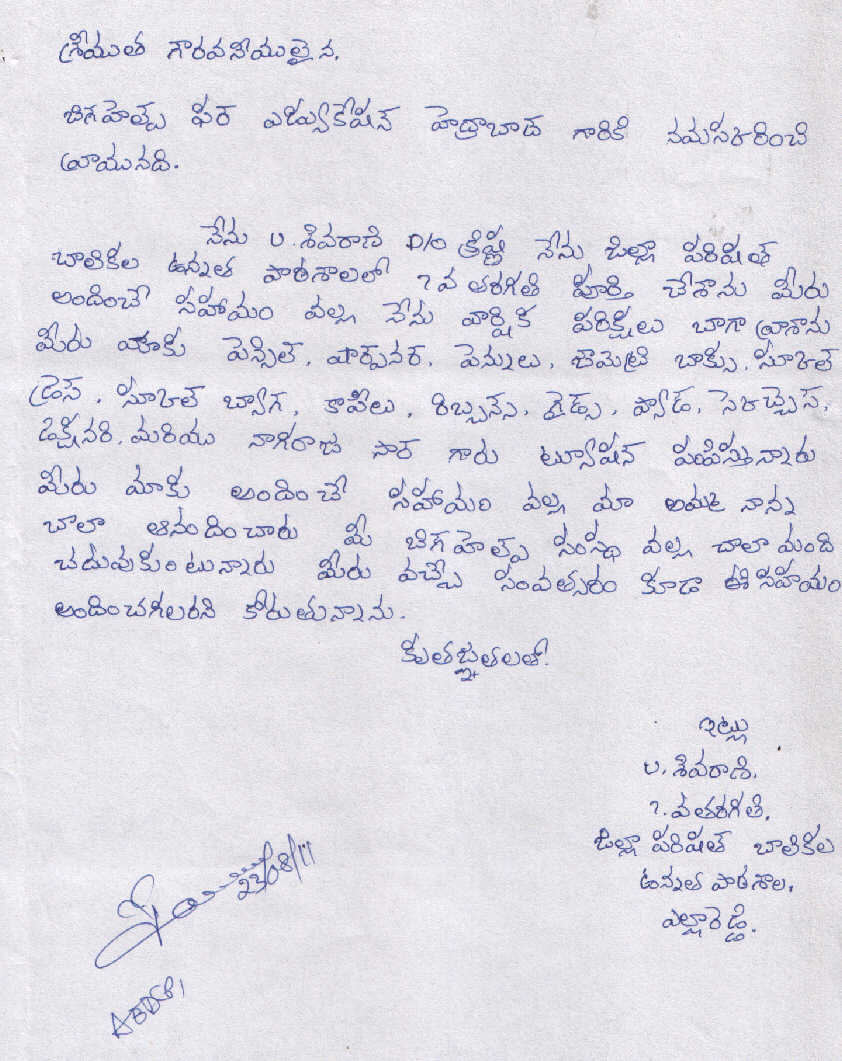 శ్రీయుత గౌరవనీయులైన,
బిగ్ హెల్ప్ ఫర్ ఎడ్యుకేషన్ హైద్రాబాద్ గారికి నమస్కరించి
వ్రాయునది.
నేను ల. శివరాణి D/O క్రిష్ణ నేను జిల్లా పరిషత్
బాలికల ఉన్నత పాఠశాలలో 7వ తరగతి పూర్తి చేశాను మీరు
అందించే సహాయం వల్ల నేను వార్షిక పరిక్షలు బాగా వ్రాశాను
మీరు మాకు పెన్సిల్, షార్పనర్, పెన్నులు, జామెట్రి బాక్సు, స్కూల్
డ్రెస్, స్కూల్ బ్యాగ్, కాపీలు, రిబ్బన్స్, బ్రెడ్స్, ప్యాడ్, స్కెచ్చెస్,
డిక్షనరి, మరియు నాగరాజు సార్ గారు ట్యూషన్ పంపిస్తున్నారు
మీరు మాకు అందించే సహాయం వల్ల మా అమ్మ నాన్న
చాలా ఆనందించారు మీ బిగ్ హెల్ప్ సంస్థ వల్ల చాలా మంది
చదువుకుంటున్నారు మీరు వచ్చే సంవత్సరం కూడా ఈ సహయం
అందించగలరని కోరుతున్నాను.
కృతజ్ఞతలతో!
ఇట్లు
ల. శివరాణి.
7. వ తరగతి,
జిల్లా పరిషత్ బాలికల
ఉన్నత పాఠశాల,
ఎల్లారెడ్డి.
23/08/11